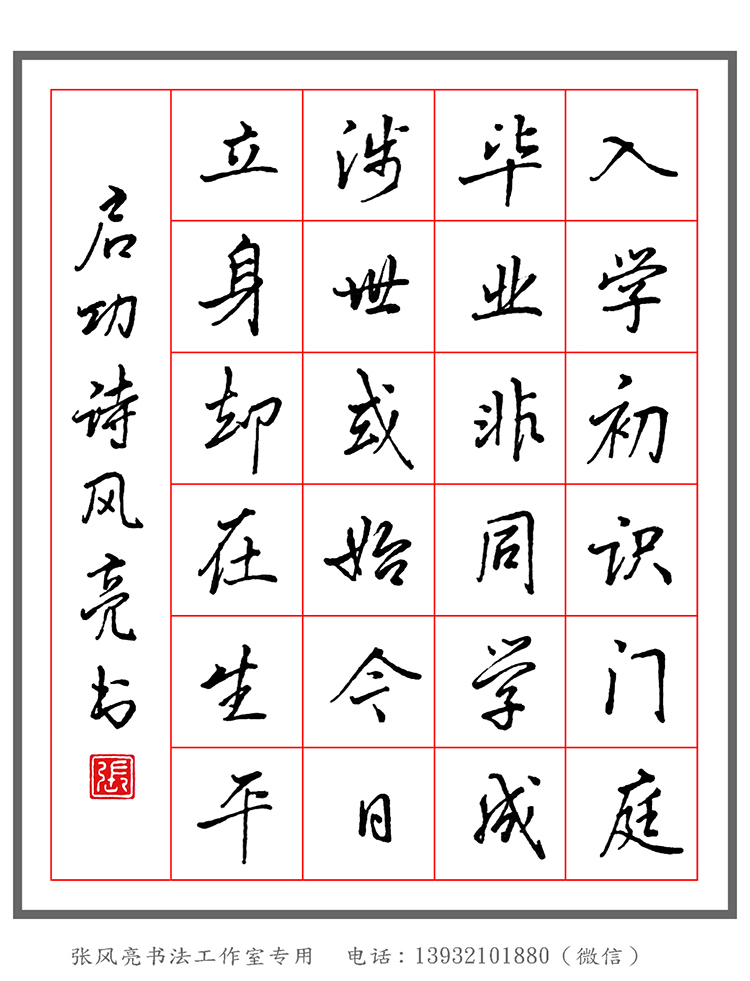 入学初识门庭
毕业非同学成
涉世或始今日
立身却在生平
启功诗风亮书
張
张风亮书法工作室专用 电话：13932101880（微信）